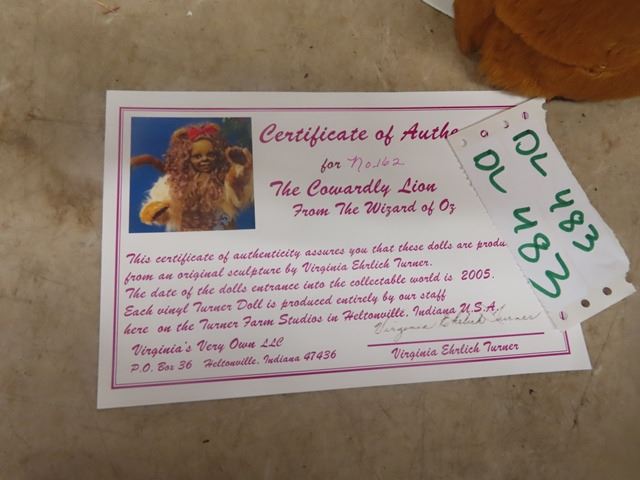 Certificate of Authe
for No. 162
The Cowardly Lion
From The Wizard of Oz
This certificate of authenticity assures you that these dolls are produ
from an original sculpture by Virginia Ehrlich Turner.
The date of the dolls entrance into the collectable world is 2005.
Each vinyl Turner Doll is produced entirely by our staff
here on the Turner Farm Studios in Heltonville, Indiana U.S.A.
Virginia Ehrlich Turner
Virginia's Very Own LLC
P.O. Box 36 Heltonville, Indiana 47436
Virginia Ehrlich Turner
DL 483
DL 483